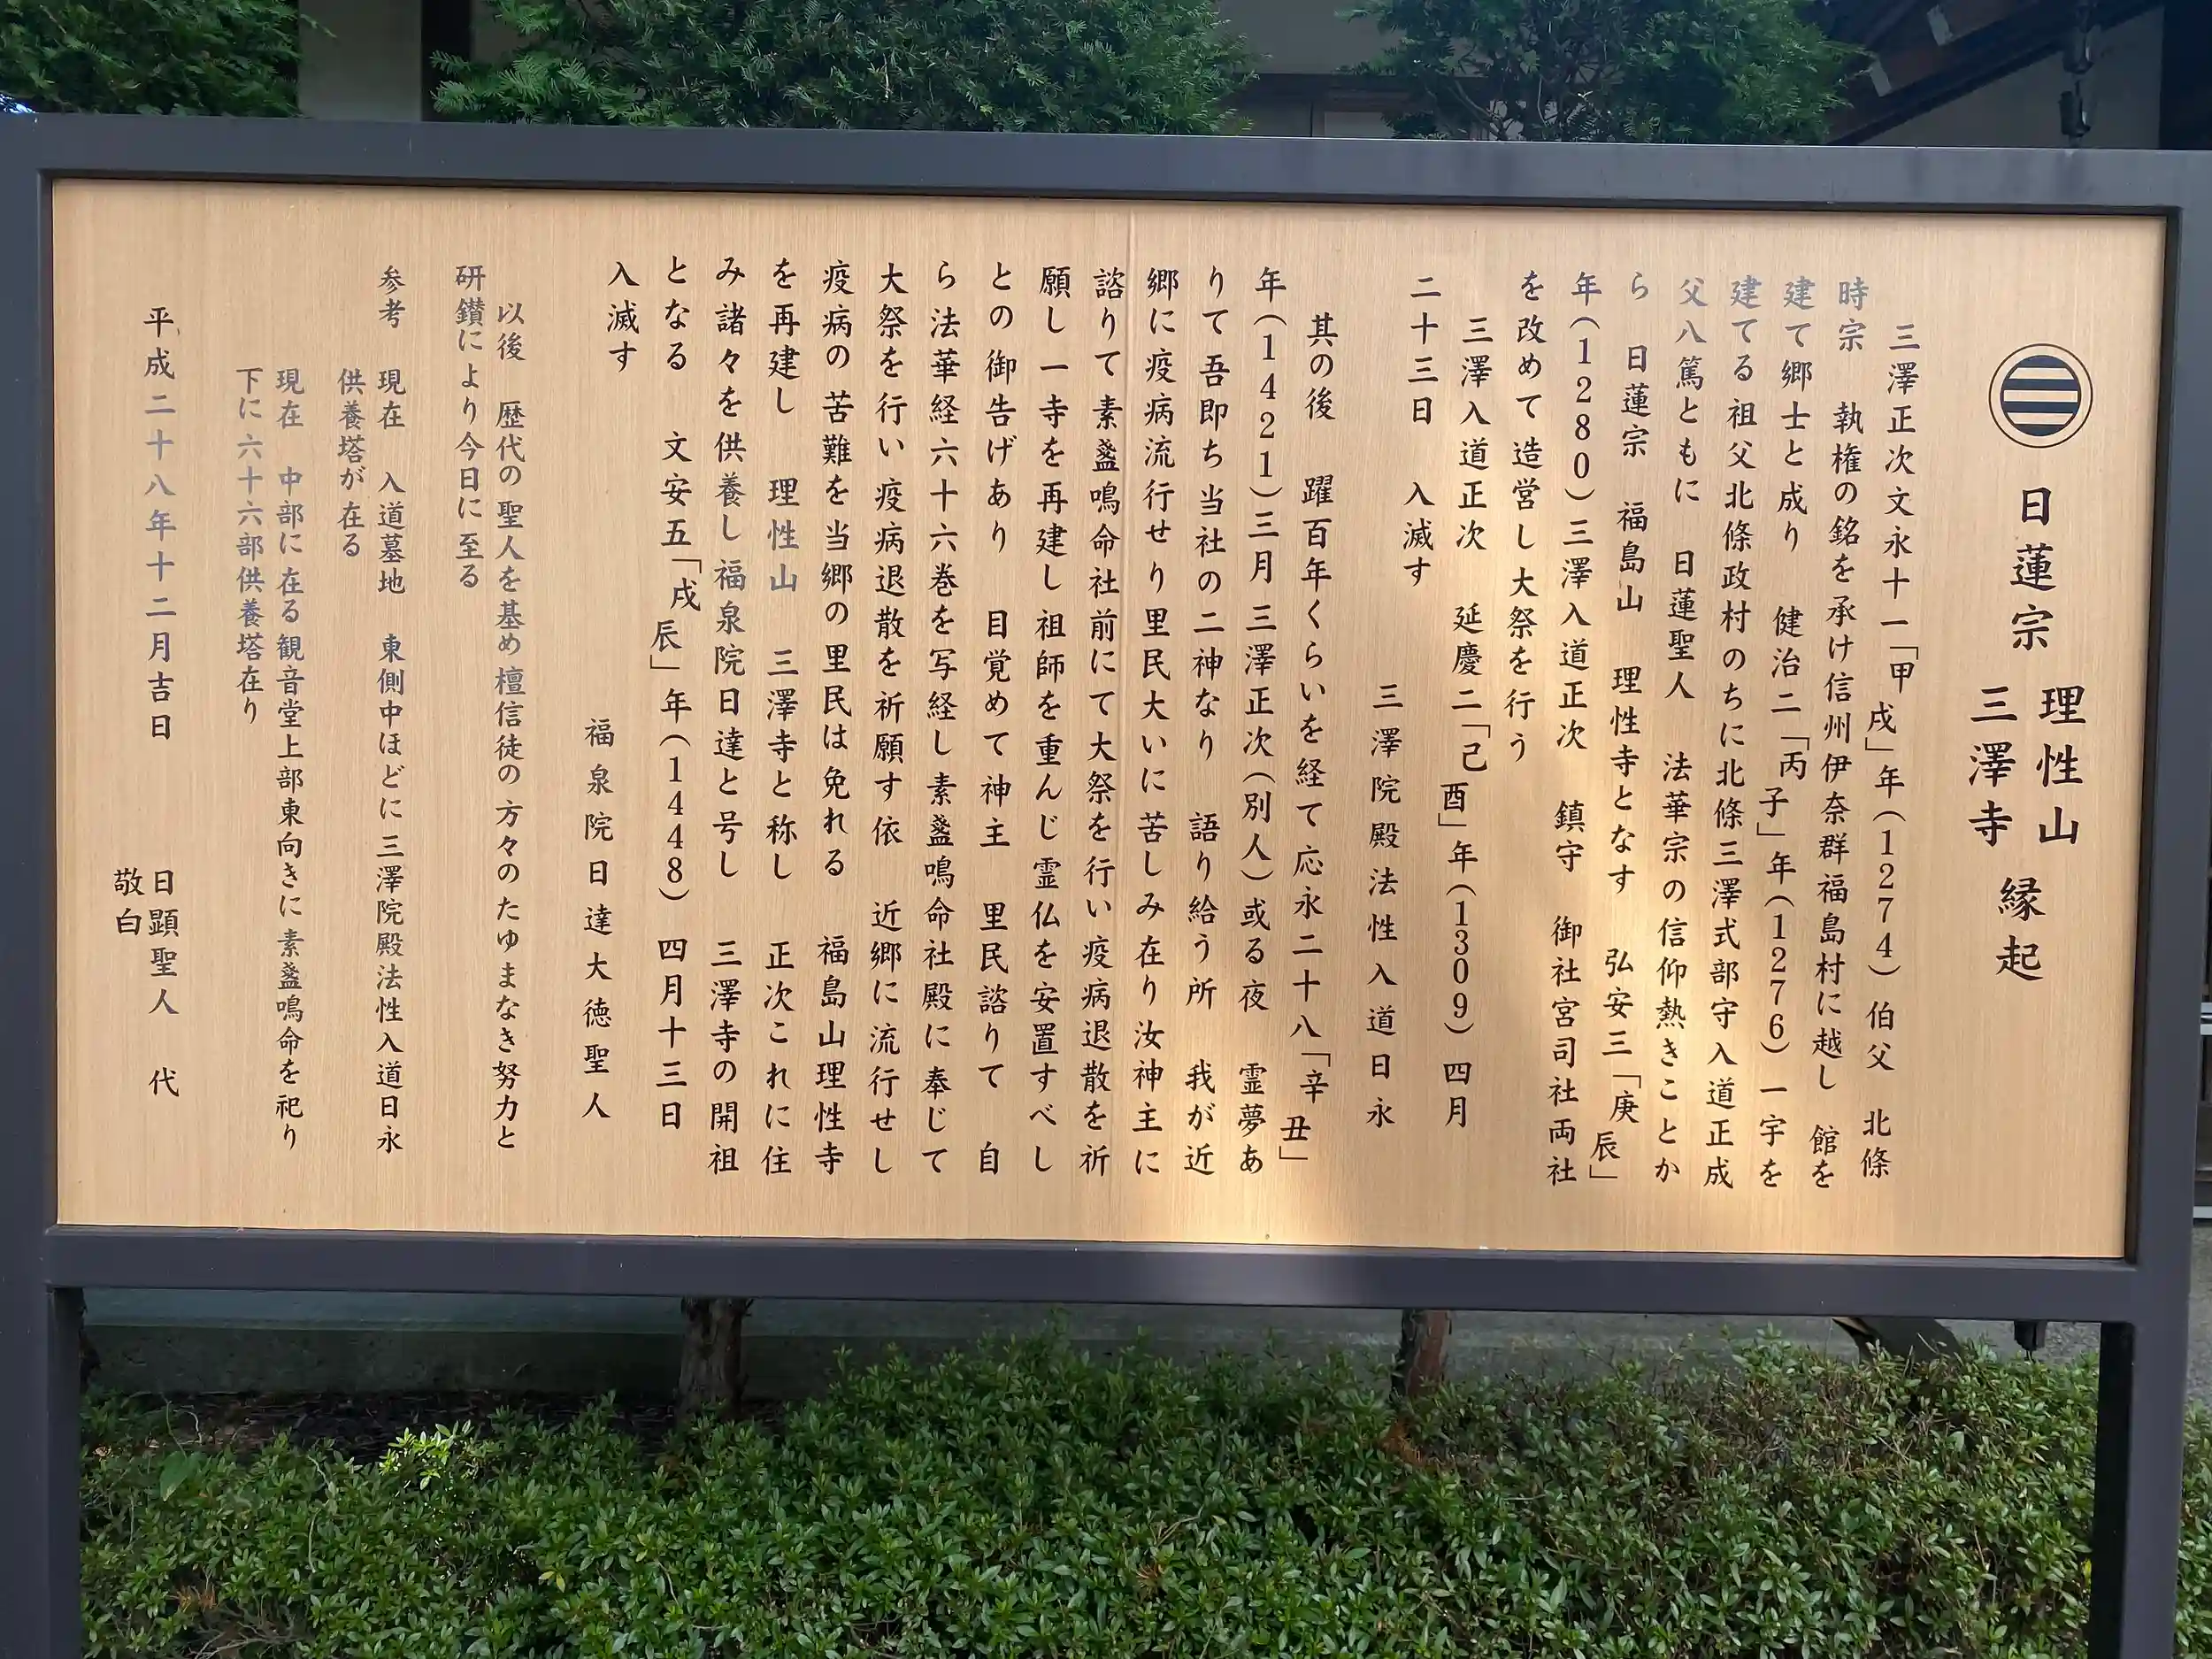 日蓮宗 理性山 三澤寺 縁起
三澤正次文永十一「甲戌」年(1274)伯父 北條
時宗 執権の銘を承け信州伊奈群福島村に越し 館を
建て郷士と成り 健治二「丙子」年(1276)一宇を
建てる 祖父北條政村のちに北條三澤式部守入道正成
父八篤ともに 日蓮聖人 法華宗の信仰熱きことか
ら 日蓮宗 福島山 理性寺となす 弘安三「庚辰」
年(1280)三澤入道正次 鎮守 御社宮司社両社
を改めて造営し大祭を行う
三澤入道正次 延慶二「己酉」年(1309)四月
二十三日 入滅す
三澤院殿法性入道日永
其の後 躍百年くらいを経て応永二十八「辛丑」
年(1421)三月三澤正次(別人)或る夜 霊夢あ
りて吾即ち当社の二神なり 語り給う所 我が近
郷に疫病流行せり里民大いに苦しみ在り汝神主に
諮りて素盞鳴命社前にて大祭を行い疫病退散を祈
願し一寺を再建し祖師を重んじ霊仏を安置すべし
との御告げあり 目覚めて神主 里民諮りて 自
ら法華経六十六巻を写経し素盞鳴命社殿に奉じて
大祭を行い疫病退散を祈願す依 近郷に流行せし
疫病の苦難を当郷の里民は免れる 福島山理性寺
を再建し 理性山 三澤寺と称し 正次これに住
み諸々を供養し福泉院日達と号し 三澤寺の開祖
となる 文安五「戌辰」年(1448)四月十三日
入滅す
福泉院日達大徳聖人
以後 歴代の聖人を基め檀信徒の方々のたゆまなき努力と
研鑽により今日に至る
参考 現在 入道墓地 東側中ほどに三澤院殿法性入道日永
供養塔が在る
現在 中部に在る観音堂上部東向きに素盞鳴命を祀り
下に六十六部供養塔在り
平成二十八年十二月吉日 日顕聖人 代
敬白